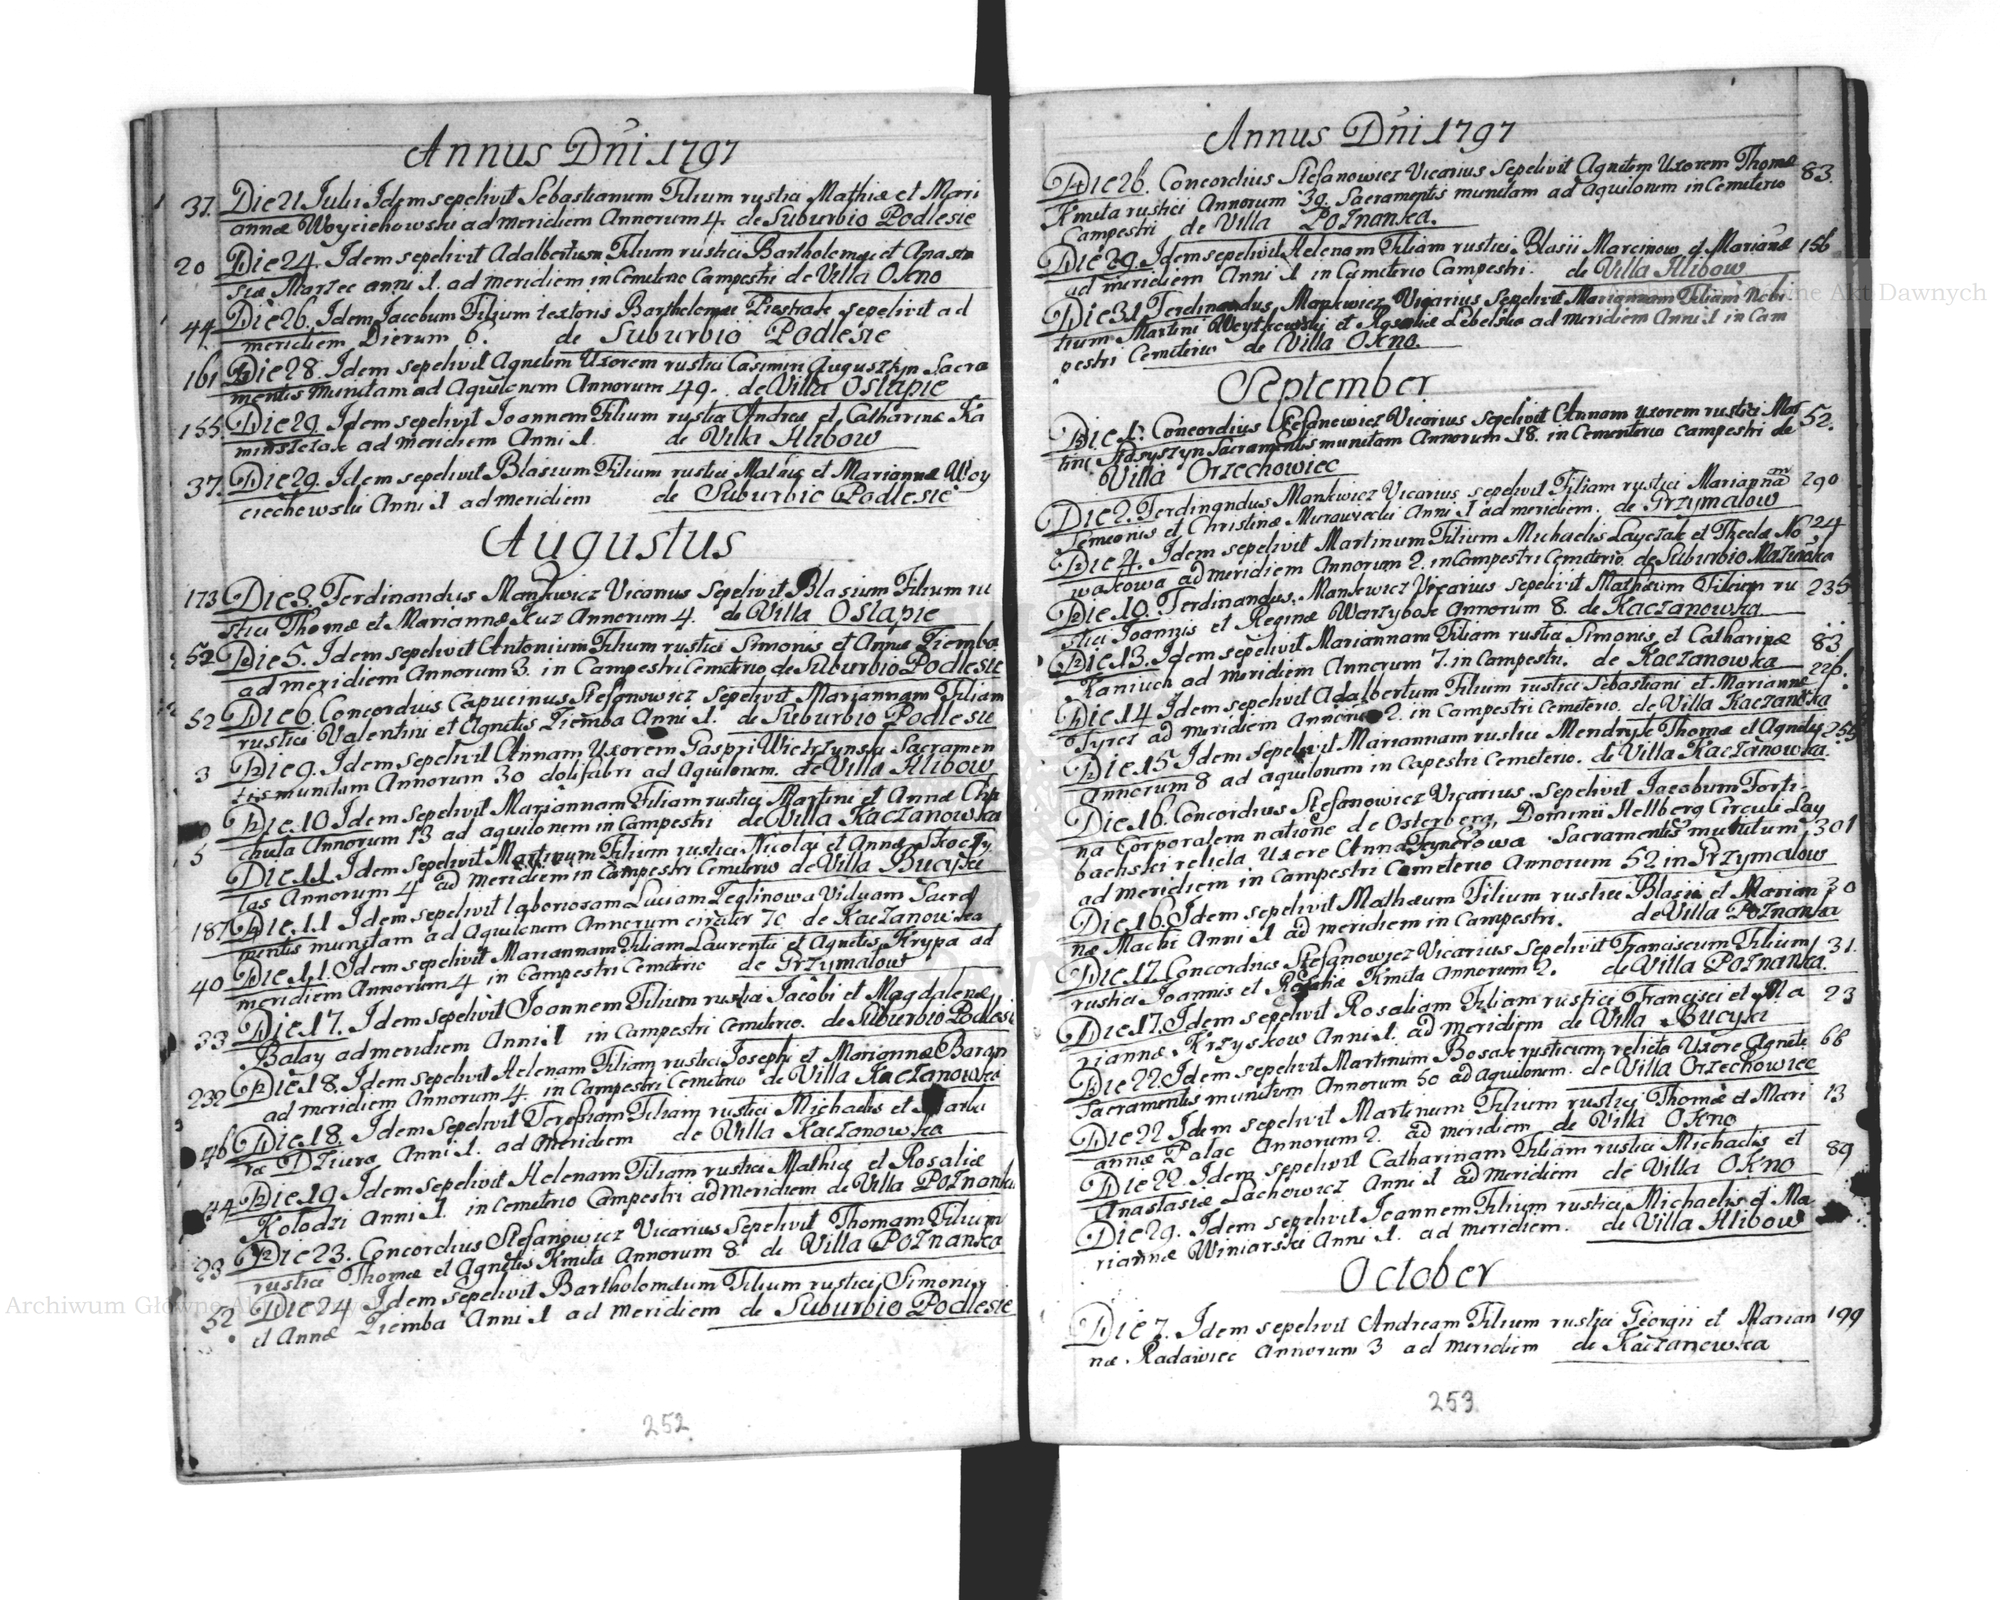 Annus Dni 1797
37. Die 21 Julii Idem sepelivit Sebastianum Filium rustici Mathiæ et Mari
annæ Woyciechowski ad meridiem Annorum 4. de Suburbio Podlesie
20 Die 24. Idem sepelivit Adalbertum Filium rustici Bartholomei et Anasta
siæ Marzec anni 1. ad meridiem in Cemeterio Campestri de Villa Okno
44. Die 26. Idem Jacobum Filium textoris Bartholomei Piestrak sepelivit ad
meridiem Dierum 6. de Suburbio Podlesie
161 Die 28. Idem sepelivit Agnetem Uxorem rustici Casimiri Augusztyn Sacra
mentis munitam ad Aquilonem Annorum 49. de Villa Ostapie
155. Die 29. Idem sepelivit Joannem Filium rustici Andreæ et Catharinæ Ka
minszczak ad meridiem Anni 1. de Villa Hlibow
37. Die 29. Idem sepelivit Blasium Filium rustici Mathiæ et Mariannæ Woy
ciechowski Anni 1 ad meridiem de Suburbio Podlesie
Augustus
173 Die 3. Ferdinandus Mankwicz Vicarius Sepelivit Blasium Filium ru
stici Thomæ et Mariannæ Kuz Annorum 4. de Villa Ostapie
52 Die 5. Idem sepelivit Antonium Filium rustici Simonis et Annæ Ziemba
ad meridiem Annorum 3. in Campestri Cemeterio de Suburbio Podlesie
52 Die 6. Concordius Capucinus Stefanowicz Sepelivit Mariannam Filiam
rustici Valentini et Agnetis Ziemba Anni 1. de Suburbio Podlesie
3 Die 9. Idem sepelivit Annam Uxorem Gaspri Wietrzynski Sacramen
tis munitam Annorum 30 dolifabri ad Aquilonem. de Villa Hlibow
Die 10 Idem sepelivit Mariannam Filiam rustici Martini et Annæ
chuta Annorum 13 ad aquilonem in Campestri de Villa Kaczanowka
5 Die 11 Idem Sepelivit Martinum Filium rustici Nicolai et Annæ Skocly
las Annorum 4 ad meridiem in Campestri Cemeterio de Villa Bucyki
187 Die 11 Idem sepelivit laboriosam Luciam Zeglinowa Viduam Sacra
mentis munitam ad Aquilonem Annorum circiter 70 de Kaczanowka
40 Die 11. Idem sepelivit Mariannam Filiam Laurentii et Agnetis Krypa ad
meridiem Annorum 4 in Campestri Cemeterio de Grzymalow
33 Die 17. Idem sepelivit Joannem Filium rustici Jacobi et Magdalenæ
Balay ad meridiem Anni 1 in Campestri Cemeterio. de Suburbio Podlesi
232 Die 18. Idem sepelivit Helenam Filiam rustici Josephi et Mariannæ Baran
ad meridiem Annorum 4. in Campestri Cemeterio de Villa Kaczanowka
46 Die 18. Idem Sepelivit Teresiam Filiam rustici Michaelis et Barba
ræ Dziura Anni 1. ad meridiem de Villa Kaczanowka
44 Die 19 Idem Sepelivit Helenam Filiam rustici Mathiæ et Rosaliæ
Kolodzi Anni 1. in Cemeterio Campestri ad meridiem de Villa Poznanka
23 Die 23. Concordius Stefanowicz Vicarius Sepelivit Thomam Filium
rustici Thomæ et Agnetis Kmita Annorum 8. de Villa Poznanka
52 Die 24 Idem Sepelivit Bartholomæum Filium rustici Simonis
et Annæ Ziemba Anni 1 ad meridiem de Suburbio Podlesie
252
Annus Dni 1797
Die 26. Concordius Stefanowicz Vicarius Sepelivit Agnetem Uxorem Thomæ 83.
Kmita rustici Annorum 39. Sacramentis munitam ad Aquilonem in Cemeterio
Campestri de Villa Poznanka.
Die 29. Idem sepelivit Helenam Filiam rustici Blasii Marcinow et Mariannæ 156
ad meridiem Anni 1 in Cemeterio Campestri. de Villa Hlibow
Die 31 Ferdinandus Mankwicz Vicarius Sepelivit Mariannam Filiam Nobi
lium Martini Woytkowski et Rosaliæ Debelska ad meridiem Anni 1 in Cam
pestri Cemeterio de Villa Okno.
September
Die 1. Concordius Stefanowicz Vicarius sepelivit Annam uxorem rustici Mar 52.
tini Sacramentis munitam Annorum 18. in Cementerio campestri de
Villa Orzechowiec
Die 2. Ferdinandus Mankwicz Vicarius sepelivit Filiam rustici Mariannam 290
Semeonis et Christinæ Murowiecki Anni 1 ad meridiem. de Grzymalow
Die 4. Idem sepelivit Martinum Filium Michaelis Layczak et Theclæ No 24
wakowa ad meridiem Annorum 2. in Campestri Cemeterio. de Suburbio Mazurowka
Die 10. Ferdinandus Mankwicz Vicarius sepelivit Mathæum Filium ru 235
stici Joannis et Reginæ Warzybok Annorum 8. de Kaczanowka
Die 13. Idem sepelivit Mariannam Filiam rustici Simonis et Catharinæ 83
Kaniuch ad meridiem Annorum 7. in Campestri. de Kaczanowka
Die 14 Idem sepelivit Adalbertum Filium rustici Sebastiani et Mariannæ 226.
Tyrcz ad meridiem Annorum 2. in Campestri Cemeterio. de Villa Kaczanowka
Die 15 Idem Sepelivit Mariannam rustici Mendryk Thomæ et Agnetis 255
Annorum 8 ad aquilonem in Capestri Cemeterio. de Villa Kaczanowka.
Die 16. Concordius Stefanowicz Vicarius. Sepelivit Jacobum Forti-
na Corporalem natione de Osterberg, Dominii Hellberg Circuli Lay 301
bachski relicta Uxore Anna Tynerowa Sacramentis munitum
ad meridiem in Campestri Cemeterio Annorum 52 in Grzymalow
Die 16. Idem sepelivit Mathæum Filium rustici Blasii et Marian 30
næ Machi Anni 1 ad meridiem in Campestri. de Villa Poznanka
Die 17. Concordius Stefanowicz Vicarius Sepelivit Franciscum Filium 31.
rustici Joannis et Rosaliæ Kmita Annorum 2. de Villa Poznanka.
Die 17. Idem sepelivit Rosaliam Filiam rustici Francisci et Ma 23
riannæ Krzyskow Anni 1. ad meridiem de Villa Bucyki
Die 22. Idem sepelivit Martinum Bosak rusticum relicta Uxore Agnete 68
Sacramentis munitum Annorum 50 ad Aquilonem. de Villa Orzechowiec
Die 22 Idem sepelivit Martinum Filium rustici Thomæ et Mari 13
annæ Palac Annorum 2. ad meridiem de Villa Okno
Die 22. Idem sepelivit Catharinam Filiam rustici Michaelis et 89
Anastasiæ Lachowicz Anni 1 ad meridiem de Villa Okno
Die 29. Idem sepelivit Joannem Filium rustici Michaelis et Ma
riannæ Winiarski Anni 1. ad meridiem. de Villa Hlibow
October
Die 7. Idem sepelivit Andream Filium rustici Georgii et Marian 199
næ Radawiec Annorum 3 ad meridiem de Kaczanowka
253
Archiwum Główne Akt Dawnych